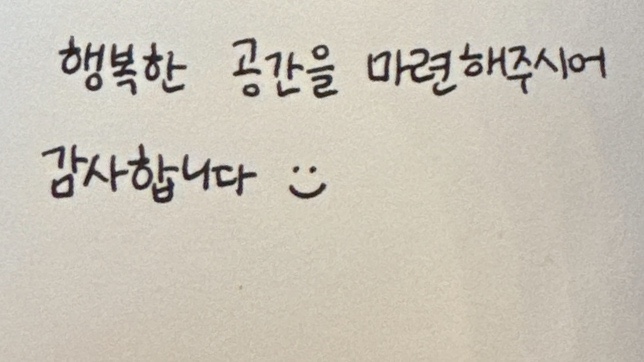 행복한 공간을 마련해주시어
감사합니다 :)